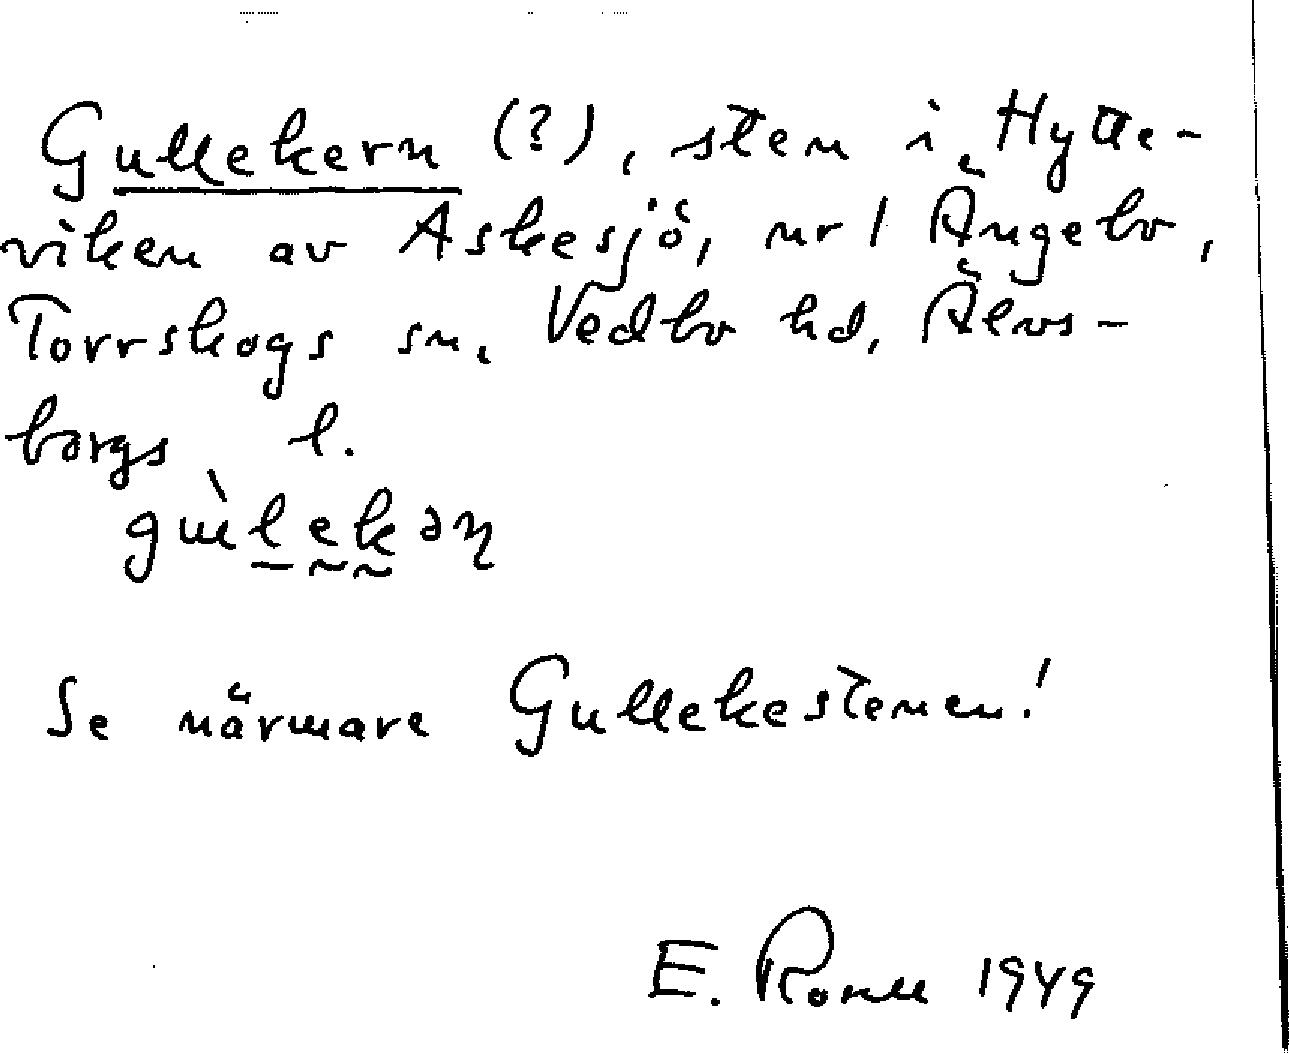 Gullekern (?), sten i Hytte-
viken av Askesjö, nr 1 Ängebo,
Torrskogs sn, Vedbo hd, Älvs-
borgs l.
Se närmare Gullekestenen!
E. 1949